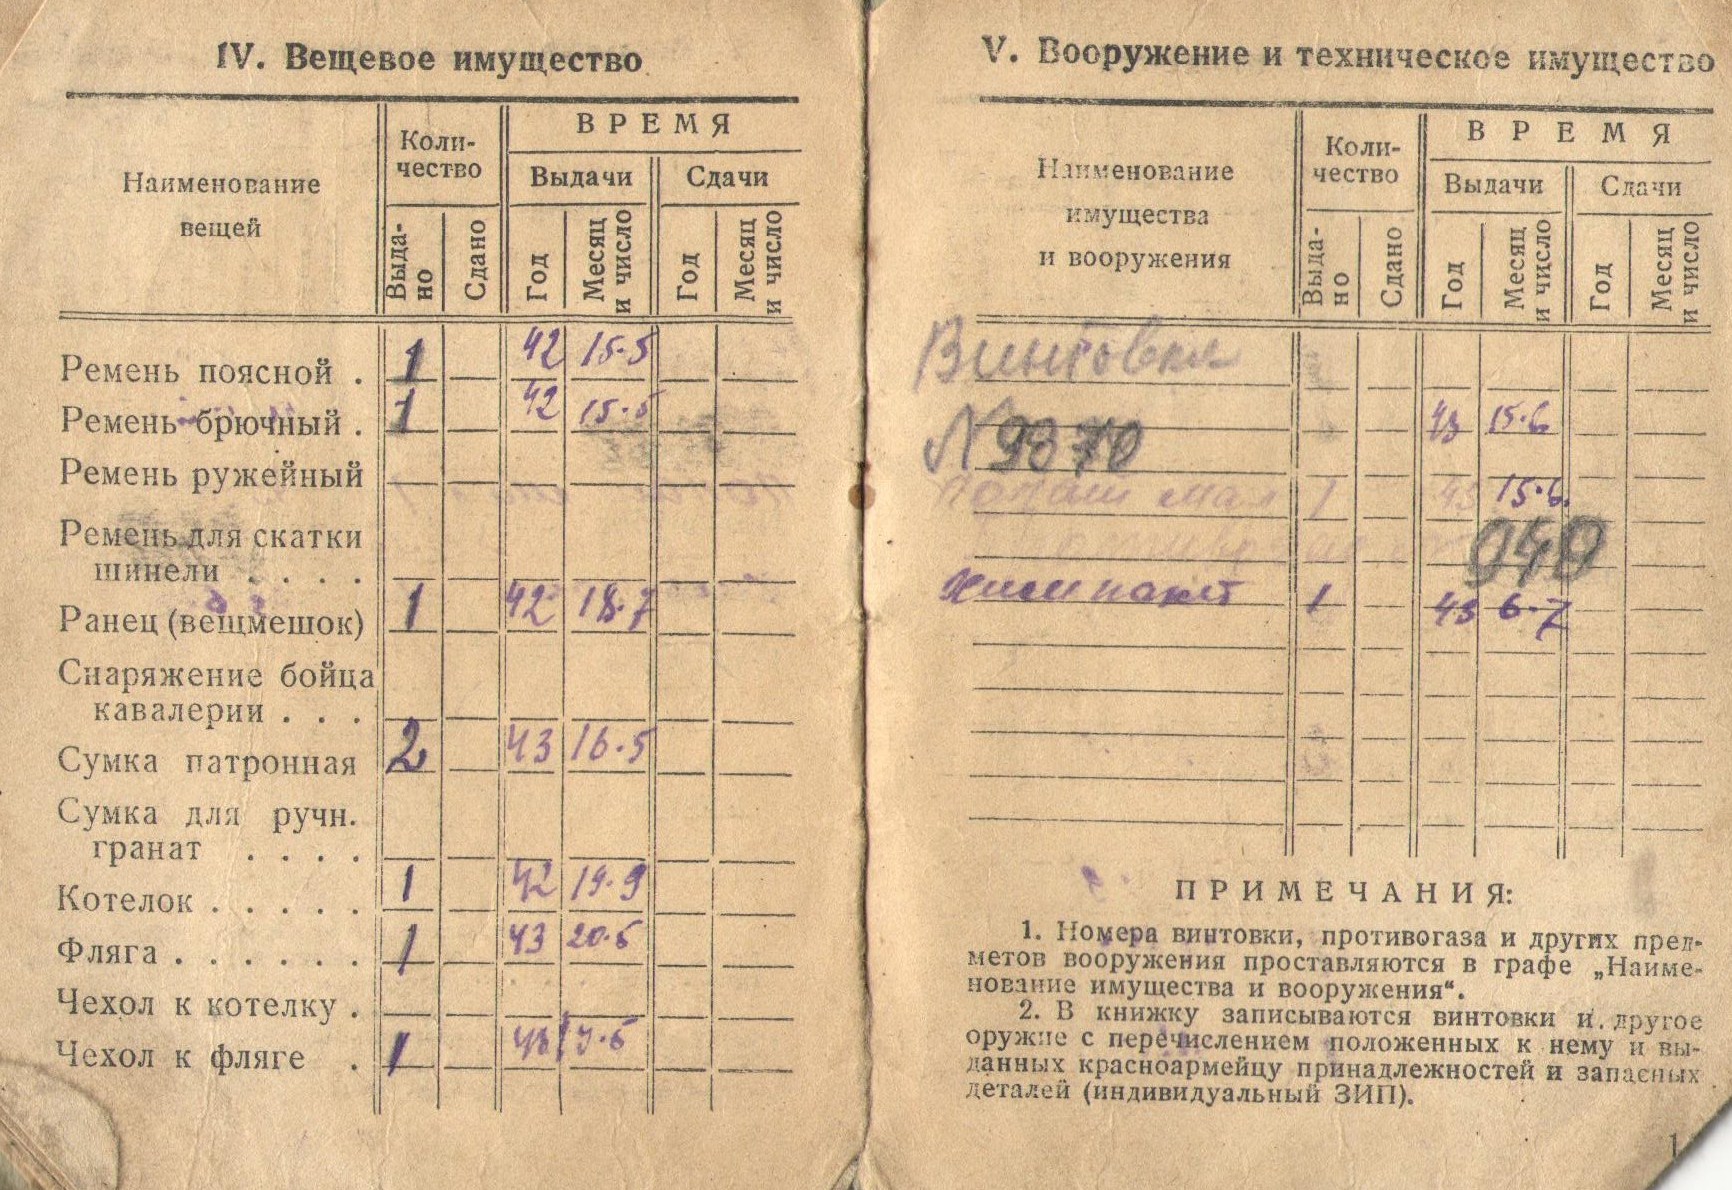 IV. Вещевое имущество
Наименование вещей
Коли-
чество
ВРЕМЯ
Выдачи
Сдачи
Выда-
но
Сдано
Год
Месяц
и число
Год
Месяц
и число
Ремень поясной . 1 42 15.5
Ремень брючный . 1 42 15.5
Ремень ружейный
Ремень для скатки
шинели . . . .
Ранец (вещмешок) 1 42 18.7
Снаряжение бойца
кавалерии . . .
Сумка патронная 2 43 16.5
Сумка для ручн.
гранат . . . .
Котелок . . . . . 1 42 19.9
Фляга . . . . . . 1 43 20.5
Чехол к котелку .
Чехол к фляге . 1
V. Вооружение и техническое имущество
Наименование
имущества
и вооружения
Коли-
чество
ВРЕМЯ
Выдачи
Сдачи
Выда-
но
Сдано
Год
Месяц
и число
Год
Месяц
и число
Винтовка
N 9870 43 15.6
мал 1 43 15.6.
040
пакет 1 43 6.7
ПРИМЕЧАНИЯ:
1. Номера винтовки, противогаза и других пред-
метов вооружения проставляются в графе „Наиме-
нование имущества и вооружения“.
2. В книжку записываются винтовки и другое
оружие с перечислением положенных к нему и вы-
данных красноармейцу принадлежностей и запасных
деталей (индивидуальный ЗИП).